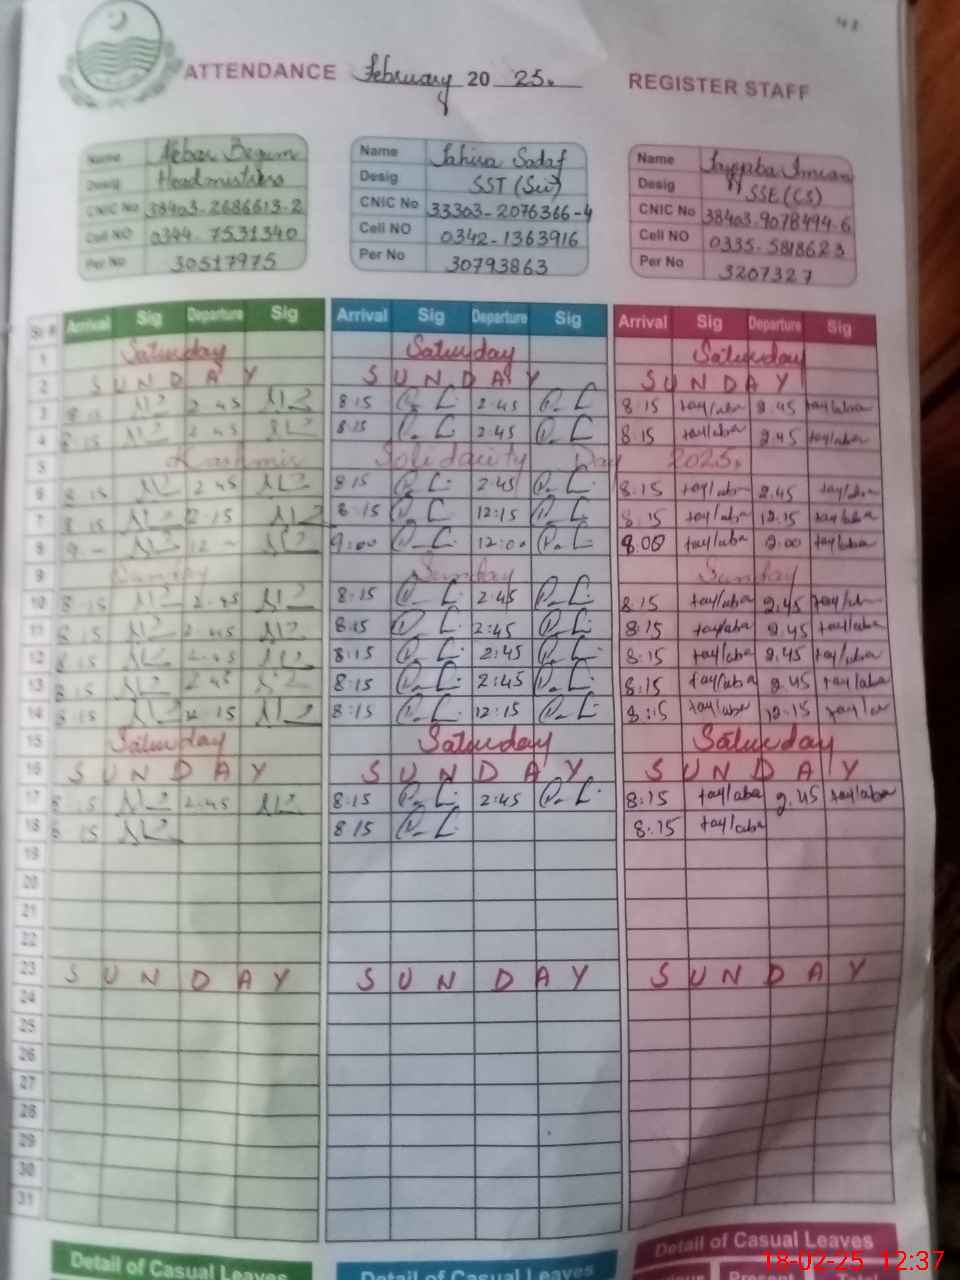 41
ATTENDANCE February 20 25. REGISTER STAFF
Name Begum
Desig Headmistress
CNIC No 38403-2686613-2
Cell NO 0344-7531340
Per No 30517975
Name Sadaf
Desig SST (Sci)
CNIC No 33303-2076366-4
Cell NO 0342-1363916
Per No 30793863
Name Imran
Desig SSE (CS)
CNIC No 38403-9078494-6
Cell NO 0335-5818623
Per No 3207327
Sr # Arrival Sig Departure Sig Arrival Sig Departure Sig Arrival Sig Departure Sig
1 Saturday Saturday Saturday
2 SUNDAY SUNDAY SUNDAY
3 8:15 2:45 8:15 2:45 8:15 tayyaba 2.45 tayyaba
4 8:15 2:45 8:15 2:45 8:15 tayyaba 2.45 tayyaba
5 Kashmir Solidarity Day 2025.
6 8:15 2:45 8:15 2:45 8:15 tayyaba 2.45 tayyaba
7 8:15 12:15 8:15 12:15 8:15 tayyaba 12.15 tayyaba
8 9:- 12:- 9:00 12:00 8.00 tayyaba 2.00 tayyaba
9 Sunday Sunday Sunday
10 8:15 2:45 8:15 2:45 8:15 tayyaba 2.45 tayyaba
11 8:15 2:45 8:15 2:45 8:15 tayyaba 2.45 tayyaba
12 8:15 2:45 8:15 2:45 8:15 tayyaba 2.45 tayyaba
13 8:15 2:45 8:15 2:45 8:15 tayyaba 2.45 tayyaba
14 8:15 12:15 8:15 12:15 8:15 tayyaba 12.15 tayyaba
15 Saturday Saturday Saturday
16 SUNDAY SUNDAY SUNDAY
17 8:15 2:45 8:15 2:45 8:15 tayyaba 2.45 tayyaba
18 8:15 8:15 8:15 tayyaba
19
20
21
22
23 SUNDAY SUNDAY SUNDAY
24
25
26
27
28
29
30
31
Detail of Casual Leaves Detail of Casual Leaves Detail of Casual Leaves
18-02-25 12:37